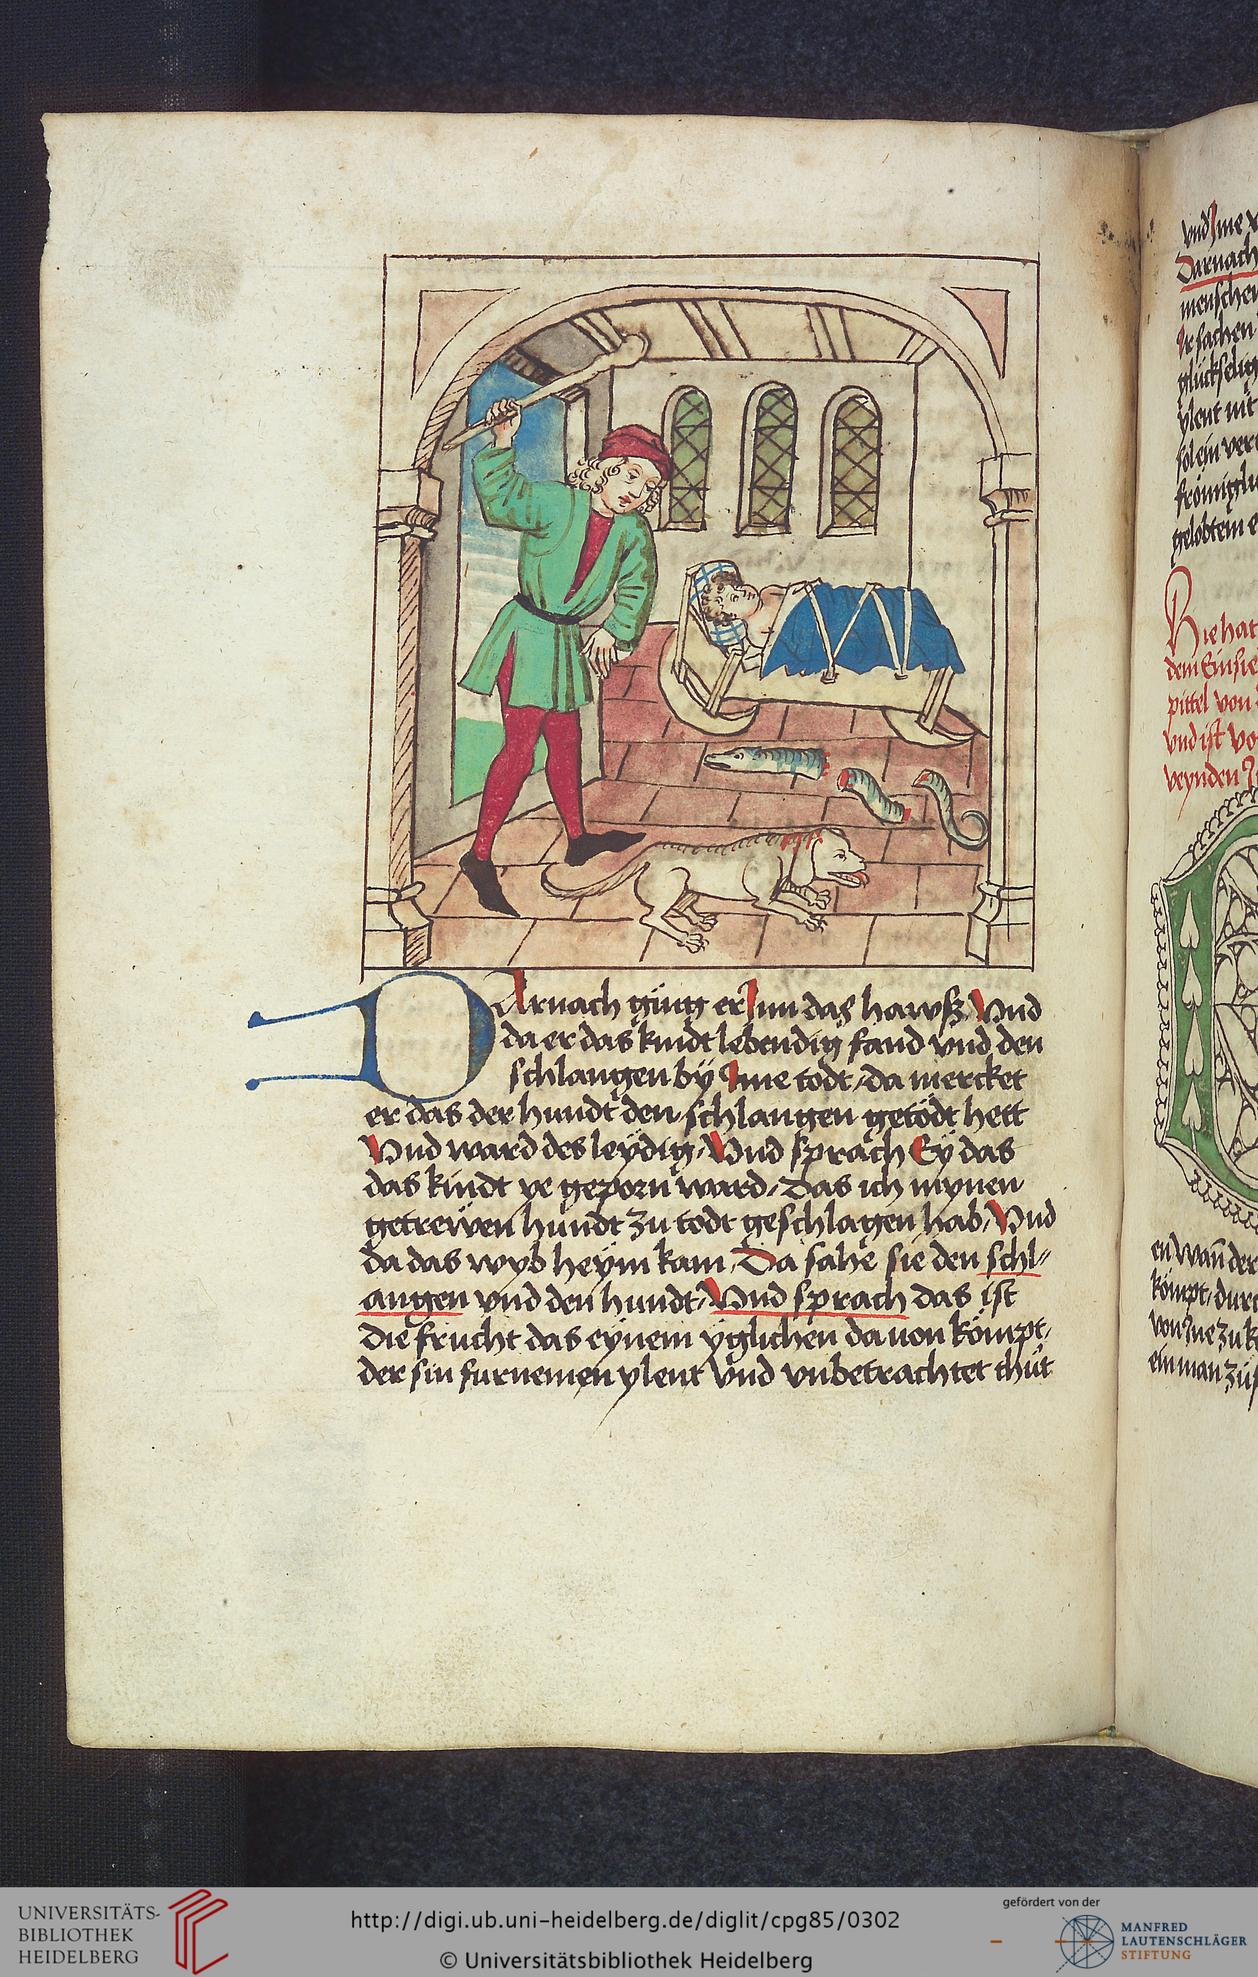 DArnach ging er Jnn das hawsz Vnd
da er das kindt lebendig fand vnd den
schlangen bÿ Jme todt, da mercket
er das der hundt den schlangen getödt hett
Vnd ward des leÿdig, Vnd sprach Eÿ das
das kindt ye geporn ward, Das ich mynen
getrewen hundt zu todt geschlagen hab, Vnd
da das wyb heÿm kam, Da sahe sie den schl-
angen vnd den hundt, Vnd sprach das ist
die frucht das eynem yglichen dauon kömpt,
der sin furnemen ylent vnd vnbetrachtet thut
vnd Jme
Darnach
menschen
Jr sachen
glückselig
ylent nit
sol ein
gelobtem
Hie hat
dem Einsie
pittel von
vnd ist vo
veynden
en wan der
kömpt, durc
von Jne zu k
ein man zü
UNIVERSITÄTS-
BIBLIOTHEK
HEIDELBERG
http://digi.ub.uni-heidelberg.de/diglit/cpg85/0302
© Universitätsbibliothek Heidelberg
gefördert von der
MANFRED
LAUTENSCHLÄGER
STIFTUNG